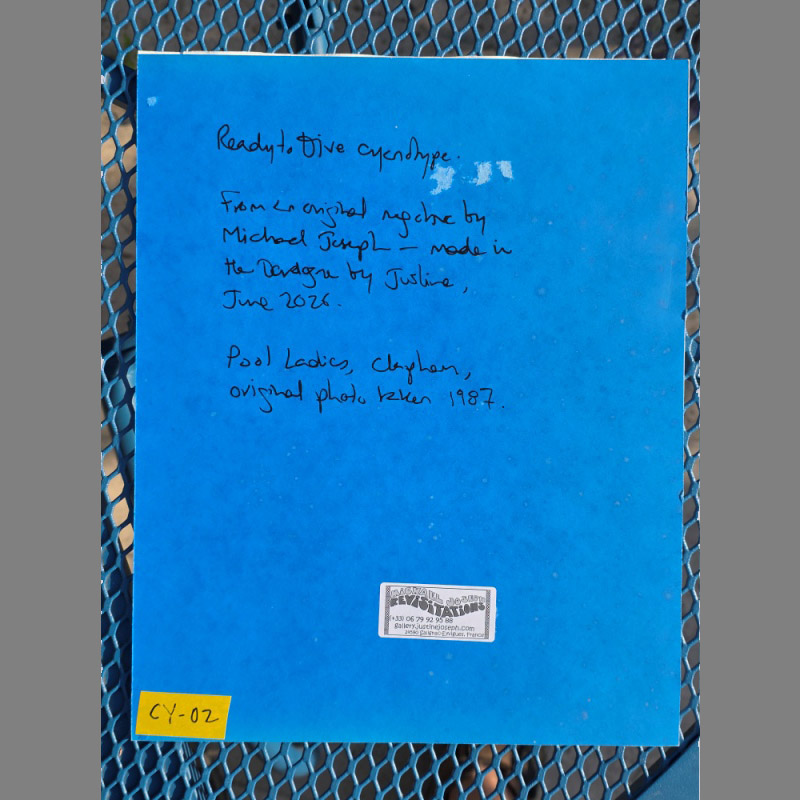 Ready to Dive cyanotype.
From an original negative by
Michael Joseph – made in
the Dordogne by Justine,
June 2026.
Pool Ladies, Clapham,
original photo taken 1987.
MICHAEL JOSEPH
REVISITATIONS
(+33) 06 79 92 95 88
gallery.justinejoseph.com
24590 Salignac-Eyvigues, France
CY-02